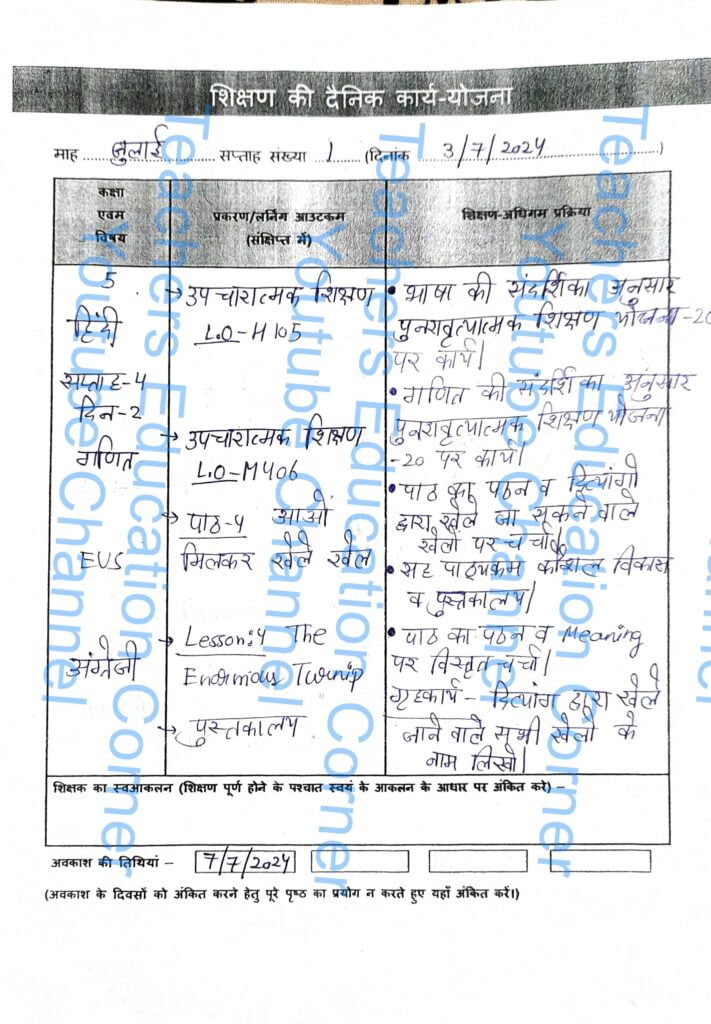 शिक्षण की दैनिक कार्य-योजना
माह जुलाई सप्ताह संख्या 1 (दिनांक 3/7/2024)
कक्षा
एवम
विषय
प्रकरण/लर्निंग आउटकम
(संक्षिप्त में)
शिक्षण-अधिगम प्रक्रिया
5
हिंदी
सप्ताह-4
दिन-2
गणित
EVS
अंग्रेजी
→ उपचारात्मक शिक्षण
L.O-H105
→ उपचारात्मक शिक्षण
L.O-M406
→ पाठ-4 आओ
मिलकर खेले खेल
→ Lesson:4 The
Enormous Turnip
→ पुस्तकालय
• भाषा की संदर्शिका अनुसार
पुनरावृत्यात्मक शिक्षण योजना-20
पर कार्य।
• गणित की संदर्शिका अनुसार
पुनरावृत्यात्मक शिक्षण योजना
-20 पर कार्य।
• पाठ का पठन व दिव्यांगो
द्वारा खेले जा सकने वाले
खेलों पर चर्चा।
• सह पाठ्यक्रम कौशल विकास
व पुस्तकालय।
• पाठ का पठन व Meaning
पर विस्तृत चर्चा।
गृहकार्य- दिव्यांग द्वारा खेले
जाने वाले सभी खेलो के
नाम लिखो।
शिक्षक का स्वआकलन (शिक्षण पूर्ण होने के पश्चात स्वयं के आकलन के आधार पर अंकित करे) –
अवकाश की तिथियां – 7/7/2024
(अवकाश के दिवसों को अंकित करने हेतु पूरे पृष्ठ का प्रयोग न करते हुए यहाँ अंकित करें।)
Teachers Education Corner
Youtube Channel
Teachers Education Corner
Youtube Channel
Teachers Education Corner
Youtube Channel